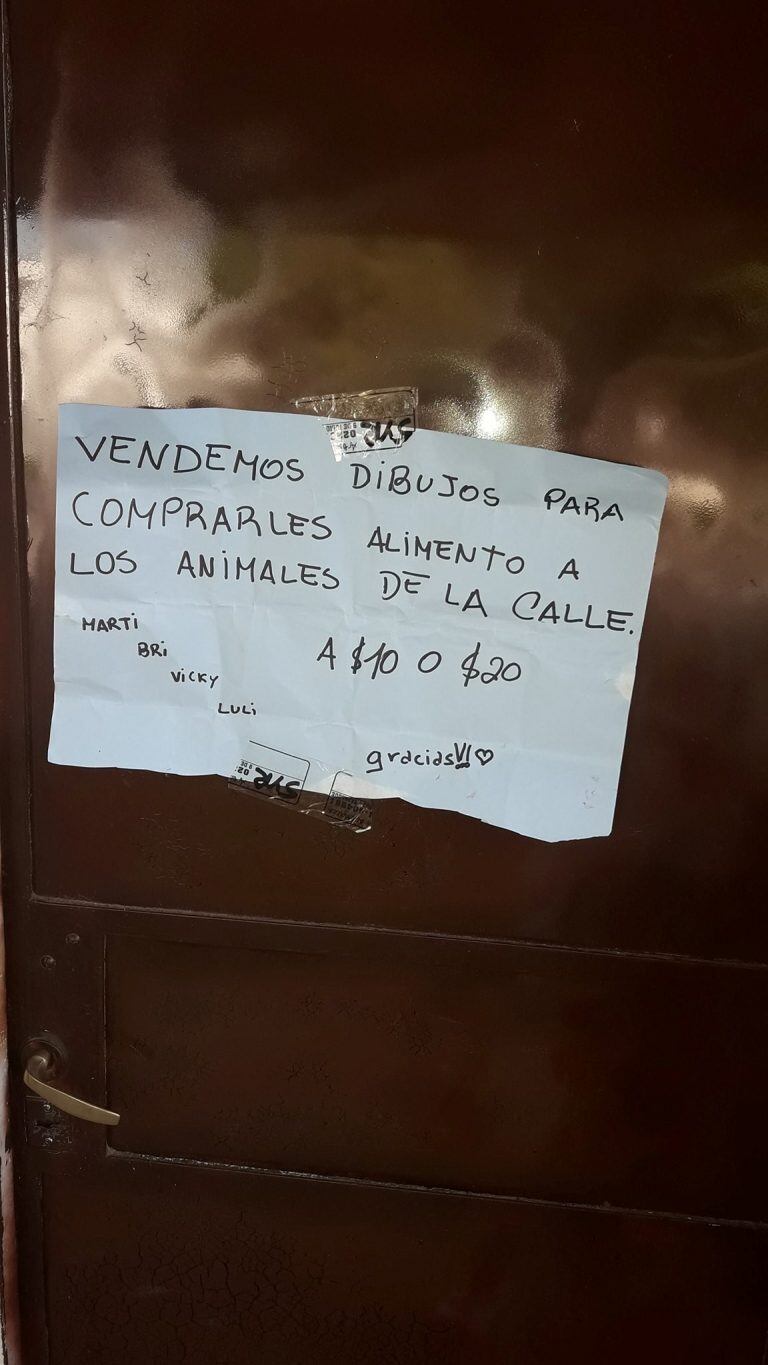 VENDEMOS DiBUJOS PARA
COMPRARLES ALiMENTO A
LOS ANiMALES DE LA CALLE.
MARTi
BRi
ViCKY
LULi
A $10 O $20
gracias!!♡